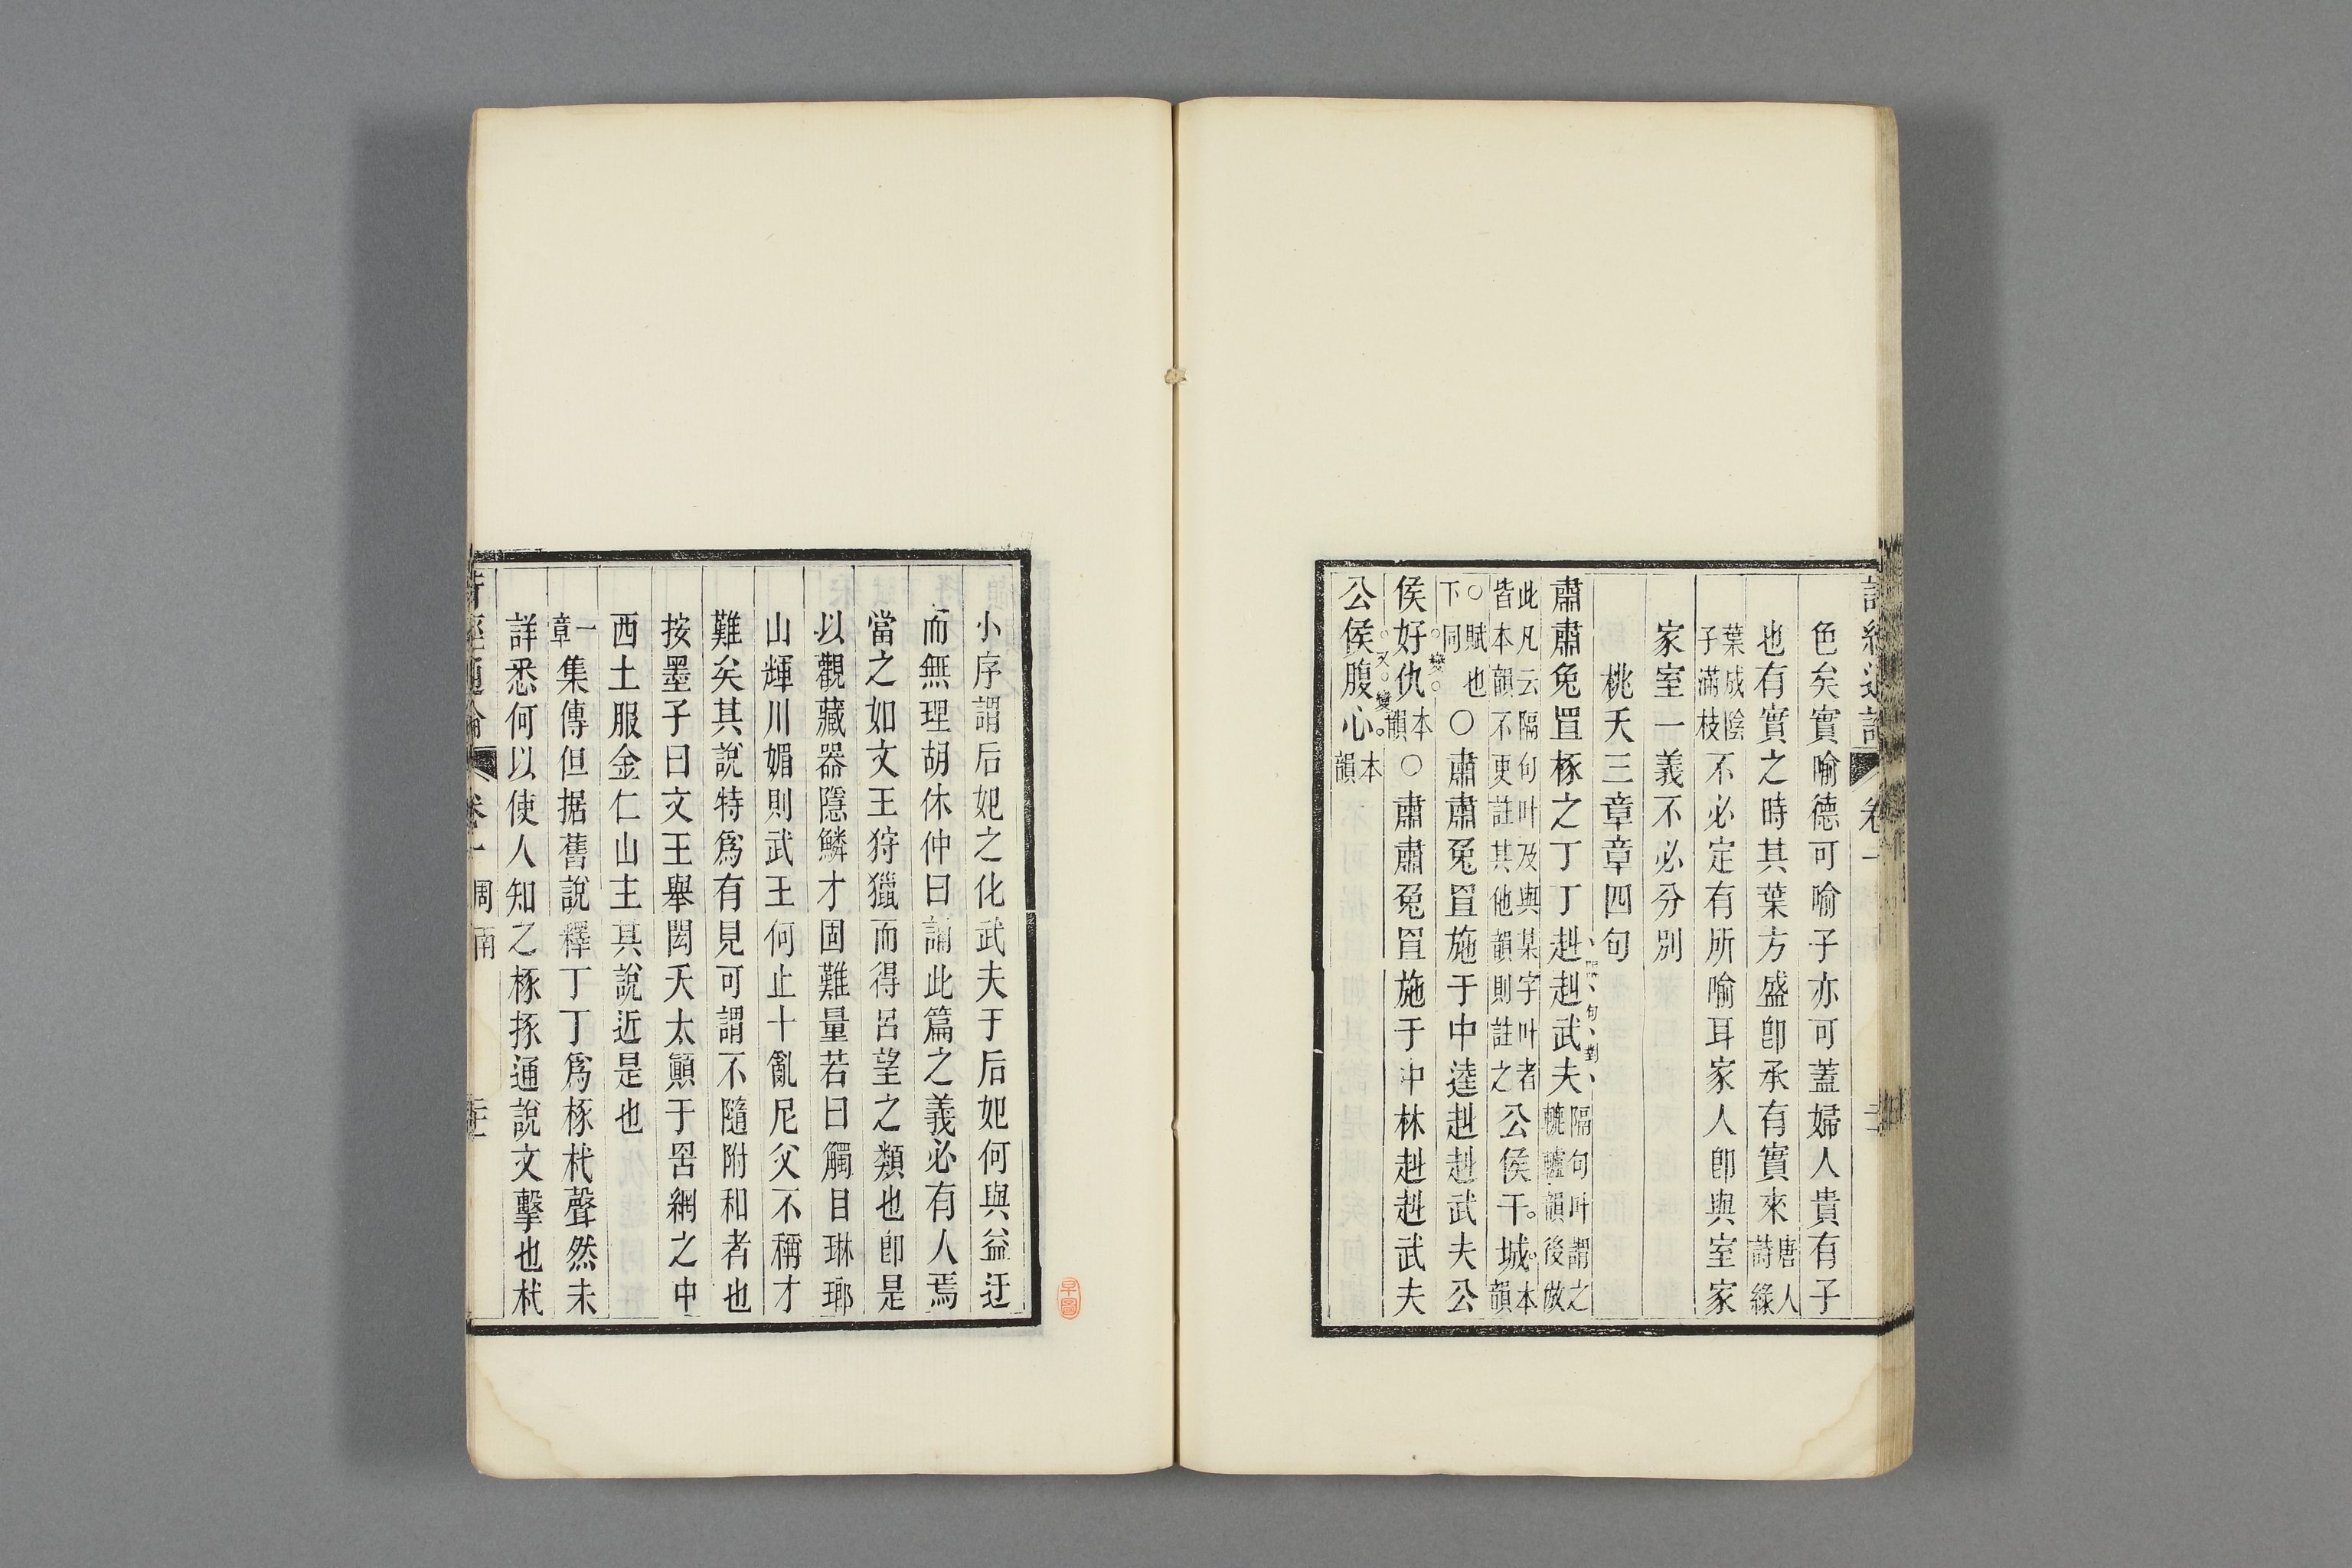 色矣實喻德可喻子亦可蓋婦人貴有子
也有實之時其葉方盛卽承有實來唐人詩綠
葉成陰子滿枝不必定有所喻耳家人卽與室家
家室一義不必分別
桃夭三章章四句
肅肅兔罝椓之丁丁赳赳武夫隔句叶謂之轆轤韻後倣
此凡云隔句叶及與某字叶者皆本韻不更註其他韻則註之公侯干城本韻
○賦也下同○肅肅兔罝施于中逵赳赳武夫公
侯好仇本韻○肅肅兔罝施于中林赳赳武夫
公侯腹心本韻
小序謂后妃之化武夫于后妃何與益迂
而無理胡休仲曰誦此篇之義必有人焉
當之如文王狩獵而得呂望之類也卽是
以觀藏器隱鱗才固難量若曰觸目琳瑯
山輝川媚則武王何止十亂尼父不稱才
難矣其說特爲有見可謂不隨附和者也
按墨子曰文王舉閎夭太顚于罟網之中
西土服金仁山主其說近是也
一章集傳但据舊說釋丁丁爲椓杙聲然未
詳悉何以使人知之椓㧻通說文擊也杙
詩經通論 卷一 周南
早圖